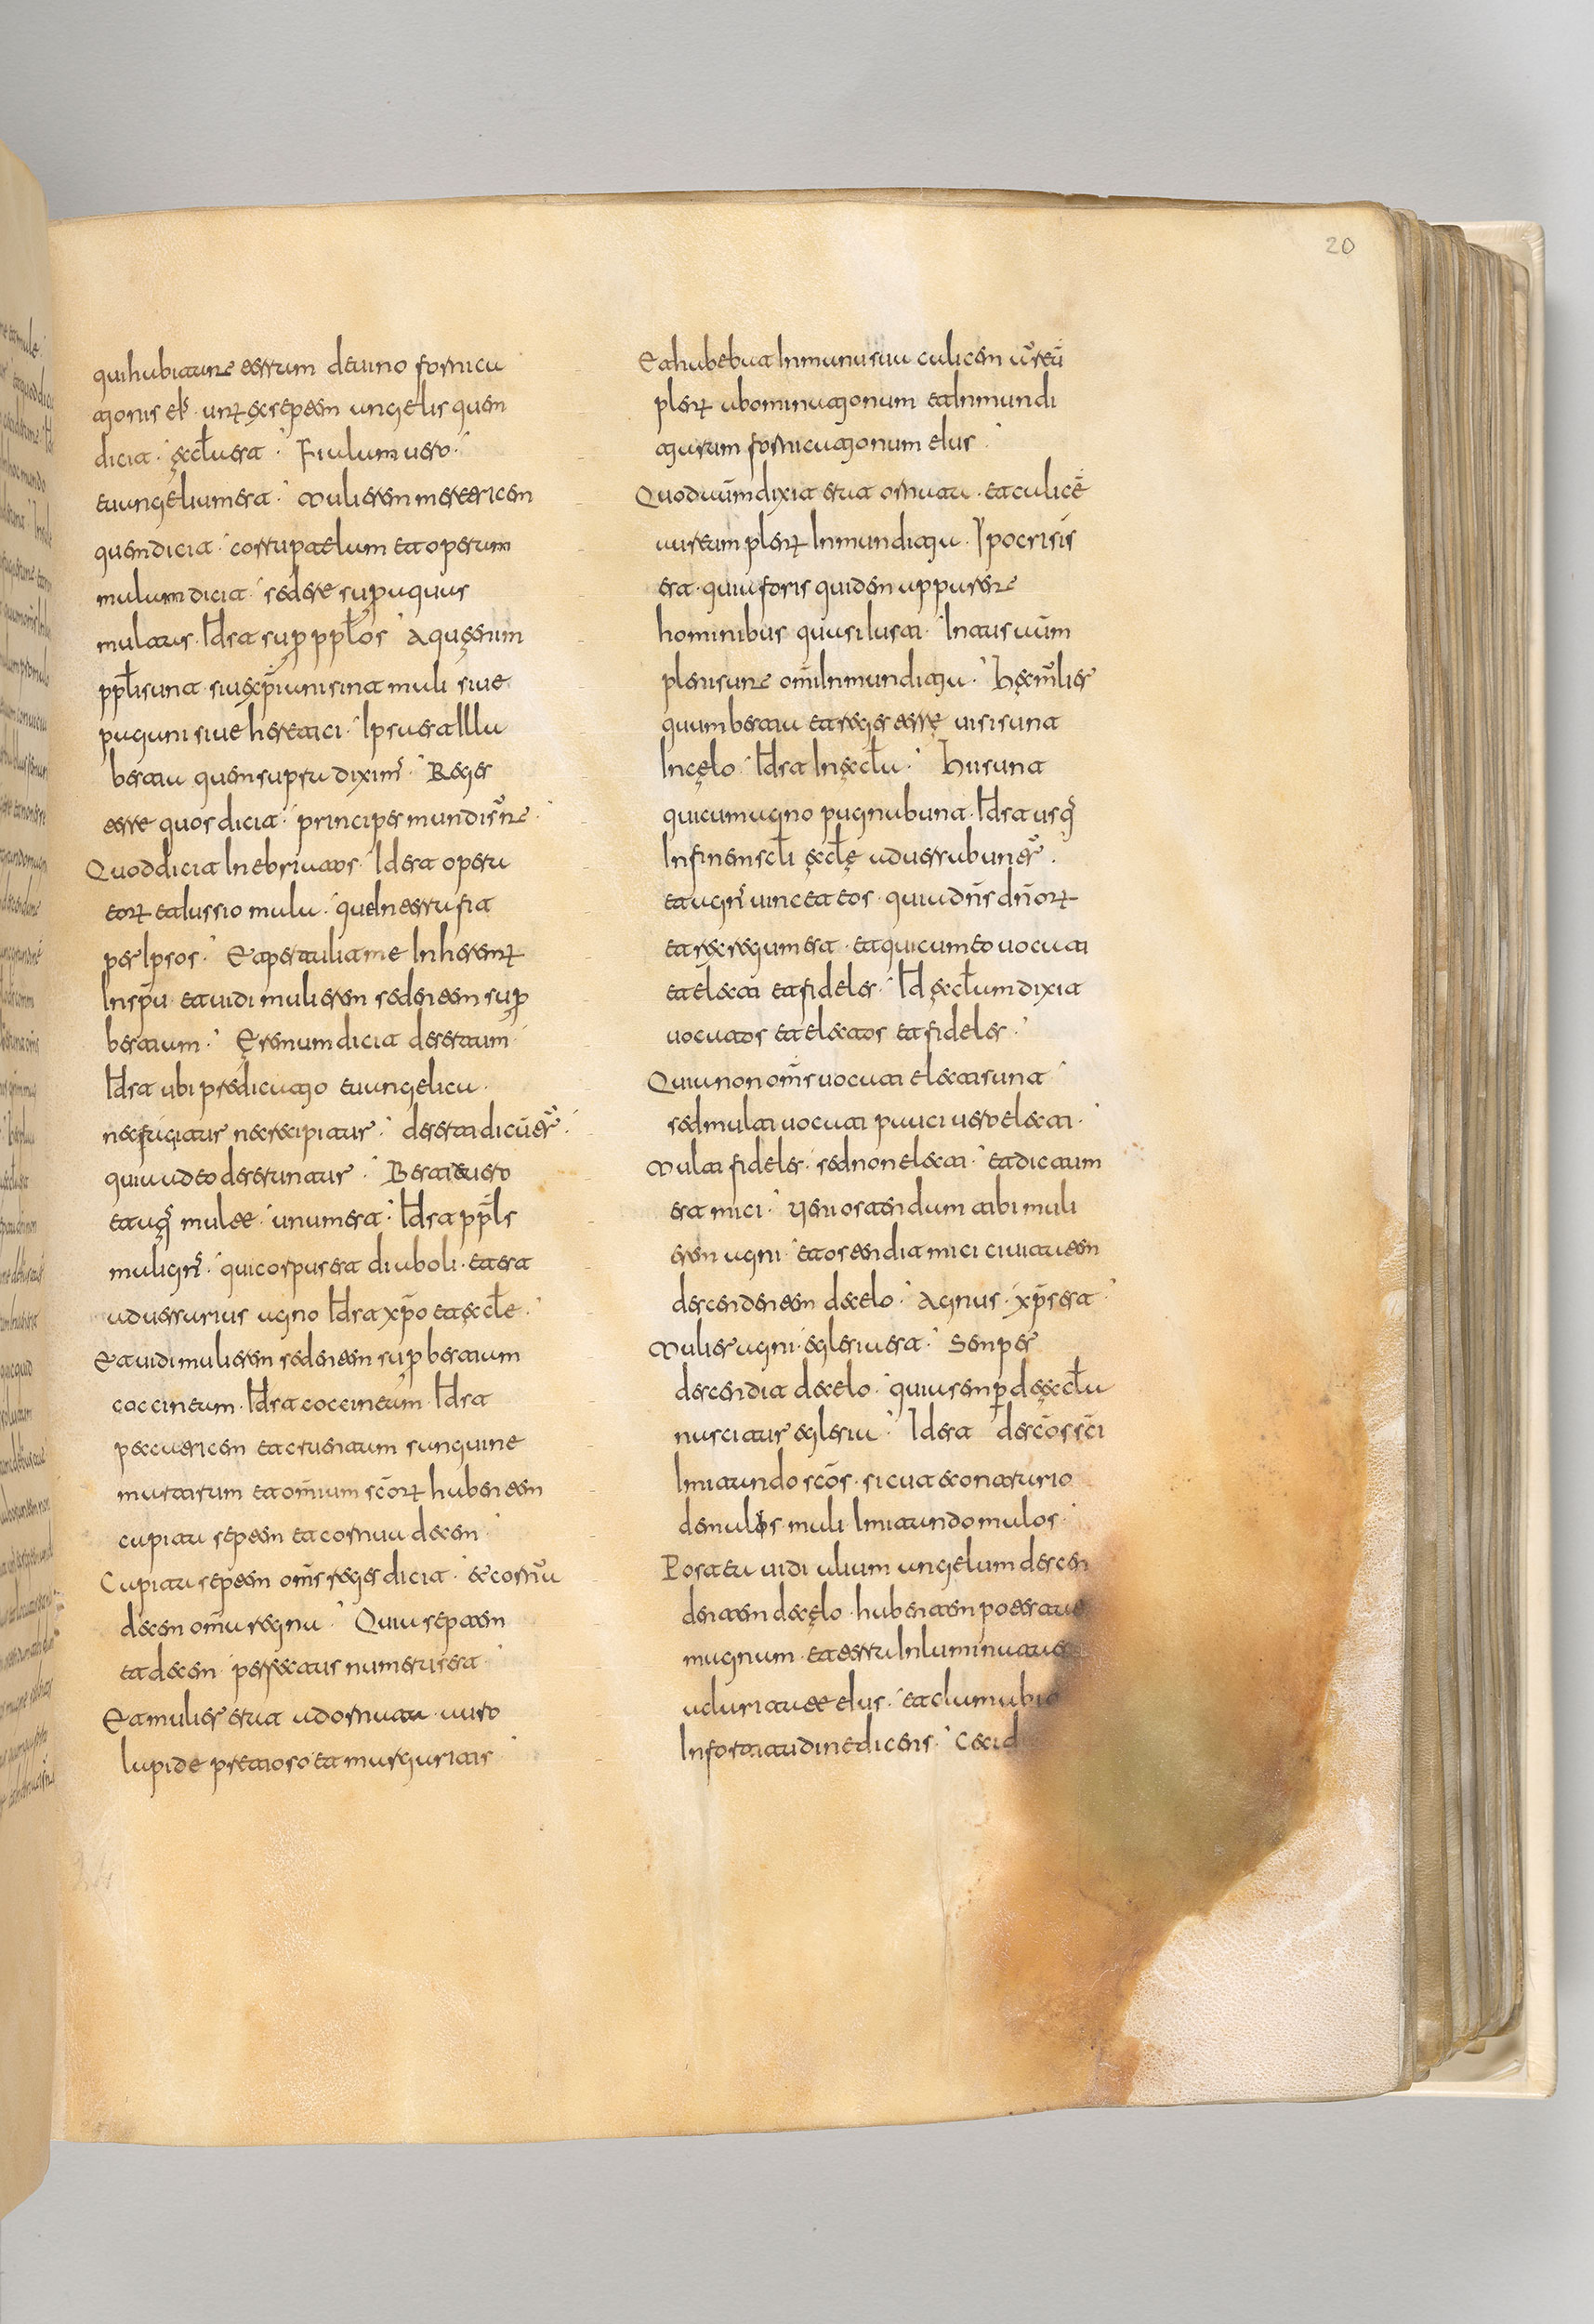 20
qui habitant terram de uino fornica
tionis eiꝰ. unꝝ ex septem angelis quem
dicit. ęcƚa est. Fialam uero.
euangelium est. Mulierem meretricem
quem dicit. corruptelam et operam
malam dicit. sedere suꝑ aquas
multas. Id est suꝑ ppƚos. Aquę enim
ppƚi sunt. siue xp̄iani sint mali siue
pagani siue heretici. Ipsa est illa
bestia quem supra diximꝰ. Reges
terre quos dicit. principes mundi sūnt.
Quod dicit inebriatos. Id est opera
eorꝝ et alussio mala. que in terra fit
per ipsos. Et pertulit me in heremꝝ
in spū. et uidi mulierem sedentem suꝑ
bestiam. Eremum dicit desertum
Id est ubi predicatio euangelica.
nec faciatur nec recipiatur. deserta dicūntur.
quia a deo deseruntur. Bestia uero
et aqꝰ multe. unum est. Id est ppƚs
malignꝰ. qui corpus est diaboli. et est
aduersarius agno Id est xp̄o et ęcƚe.
Et uidi mulierem sedentem suꝑ bestiam
coccineam. Id est coccineam. Id est
peccatricem et cruentam sanguine
martirum et om̄ium scōrꝝ habentem
capita septem et cornua decem.
Capita septem om̄s reges dicit. et cornua
decem om̄a regna. Quia septem
et decem perfectus numerus est.
Et mulier erat adornata auro
lapide pretioso et margaritis.
Et habebat in manu sua calicem aureū
plenꝝ abominationum et inmundi
tiarum fornicationum eius.
Quod aūm dixit erat ornata. et calicē
aureum plenꝝ inmunditia. Ipocrisis
est. quia foris quidem apparent
hominibus quasi iusti. Intus aūm
pleni sunt om̄i inmunditia. Hęc mulier
quam bestia et reges terrę uisi sunt
in cęlo. Id est in ęcƚa. Hii sunt
qui cum agno pugnabunt. Id est usqꝰ
in finem scƚi ęcƚę aduersabuntur.
et agnꝰ uincet eos. quia dn̄s dn̄orꝝ
et rex regum est. et qui cum eo uocati
et electi et fideles. Id ęcƚam dixit
uocatos et electos et fideles.
Quia non om̄s uocati electi sunt
sed multi uocati pauci uero electi.
Multi fideles. sed non electi. Et dictum
est mici. Ueni ostendam tibi muli
erem agni. et ostendit mici ciuitatem
descendentem de celo. Agnus. xp̄s est.
Mulier agni. eglesia est. Semper
descendit de celo. quia semꝑ de ęcƚa
nascitur eglesia. Id est de scōs scī
imitando scōs. sicut e contrario
de malos mali imitando malos.
Post ea uidi alium angelum descen
dentem de cęlo. habentem potestate
magnum et terra inluminata
a claritate eius. et clamabit
in fortitudine dicens.